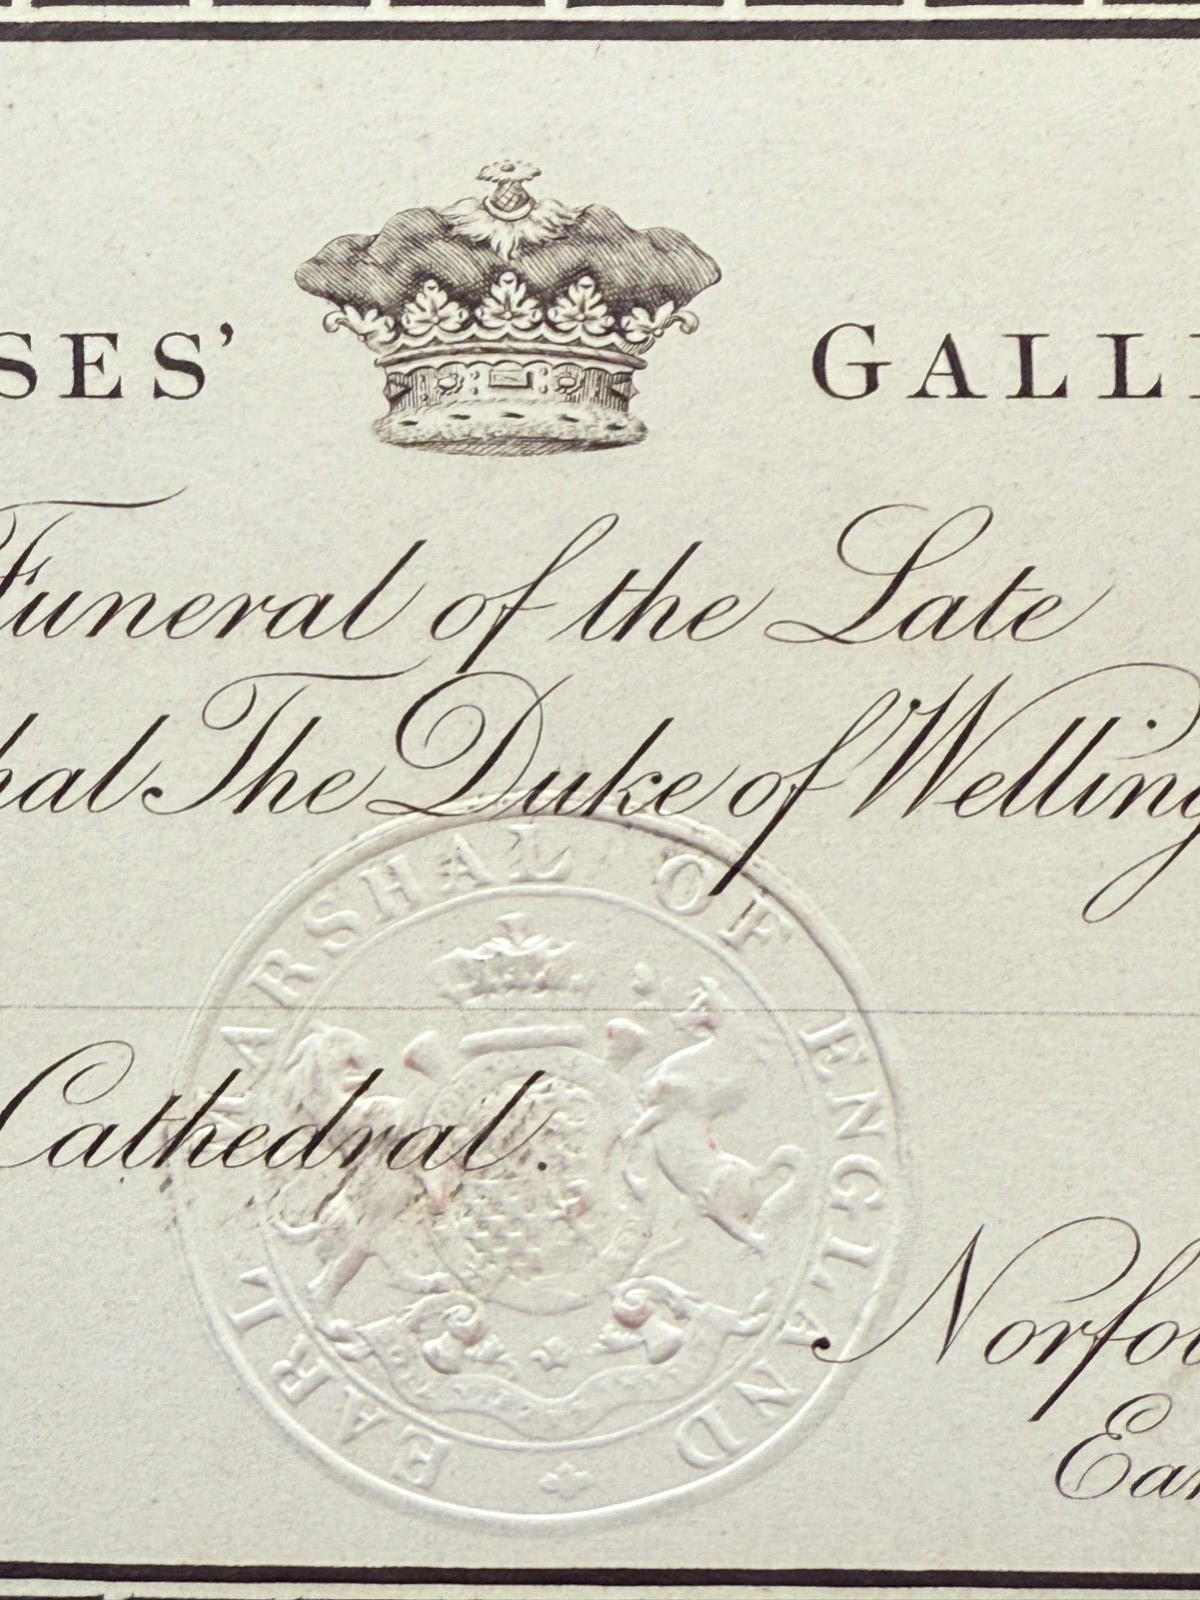 SES' GALL
Funeral of the Late
hal The Duke of Welling
Cathedral.
EARL MARSHAL OF ENGLAND
Norfol
Ear